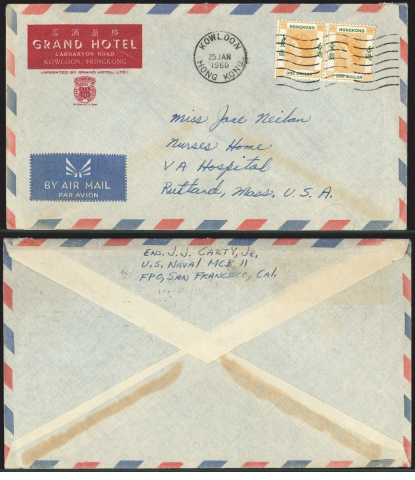 GRAND HOTEL
CARNARVON ROAD
KOWLOON, HONGKONG
(OPERATED BY GRAND HOTEL LTD.)
KOWLOON
25 JAN
1960
HONG KONG
HONGKONG
ONE DOLLAR
HONGKONG
ONE DOLLAR
Miss Jane Neilan
Nurses Home
VA Hospital
Rutland, Mass. U.S.A.
BY AIR MAIL
PAR AVION
ENS. J.J. CARTY, JR.
U.S. NAVAL MCB 11
FPO, SAN FRANCISCO, CAL.